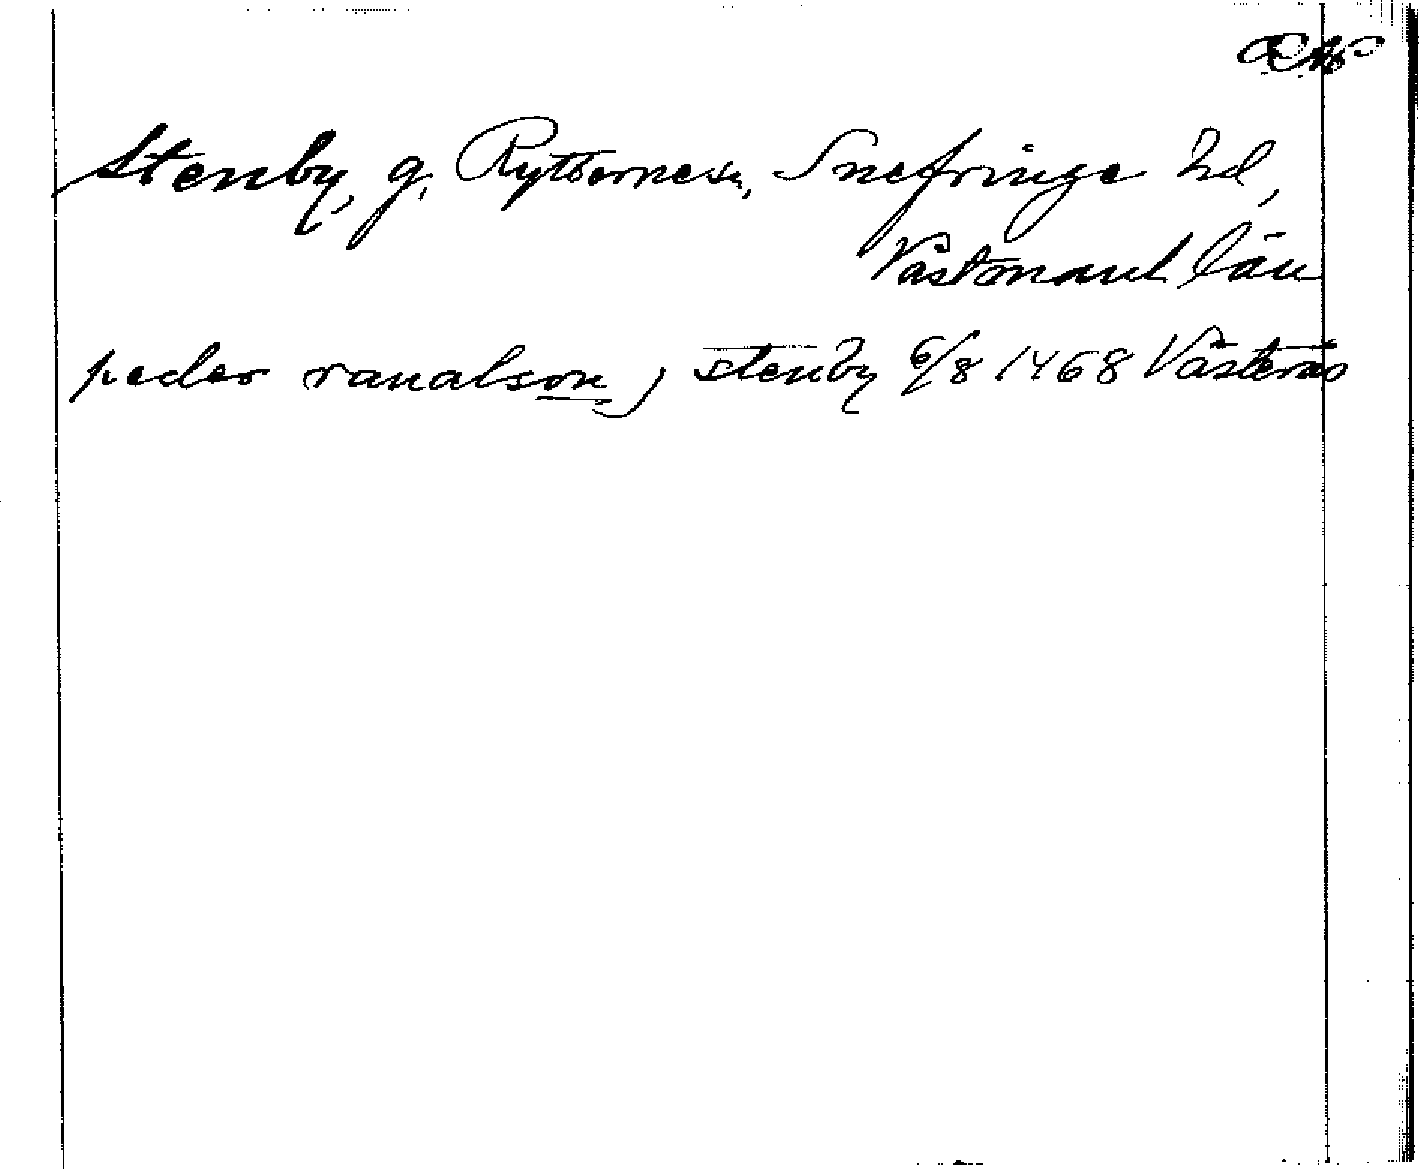 Stenby, g. Rytterne sn, Snefringe hd,
Västmanl län
peder ranalson j stenby 6/8 1468 Västerås